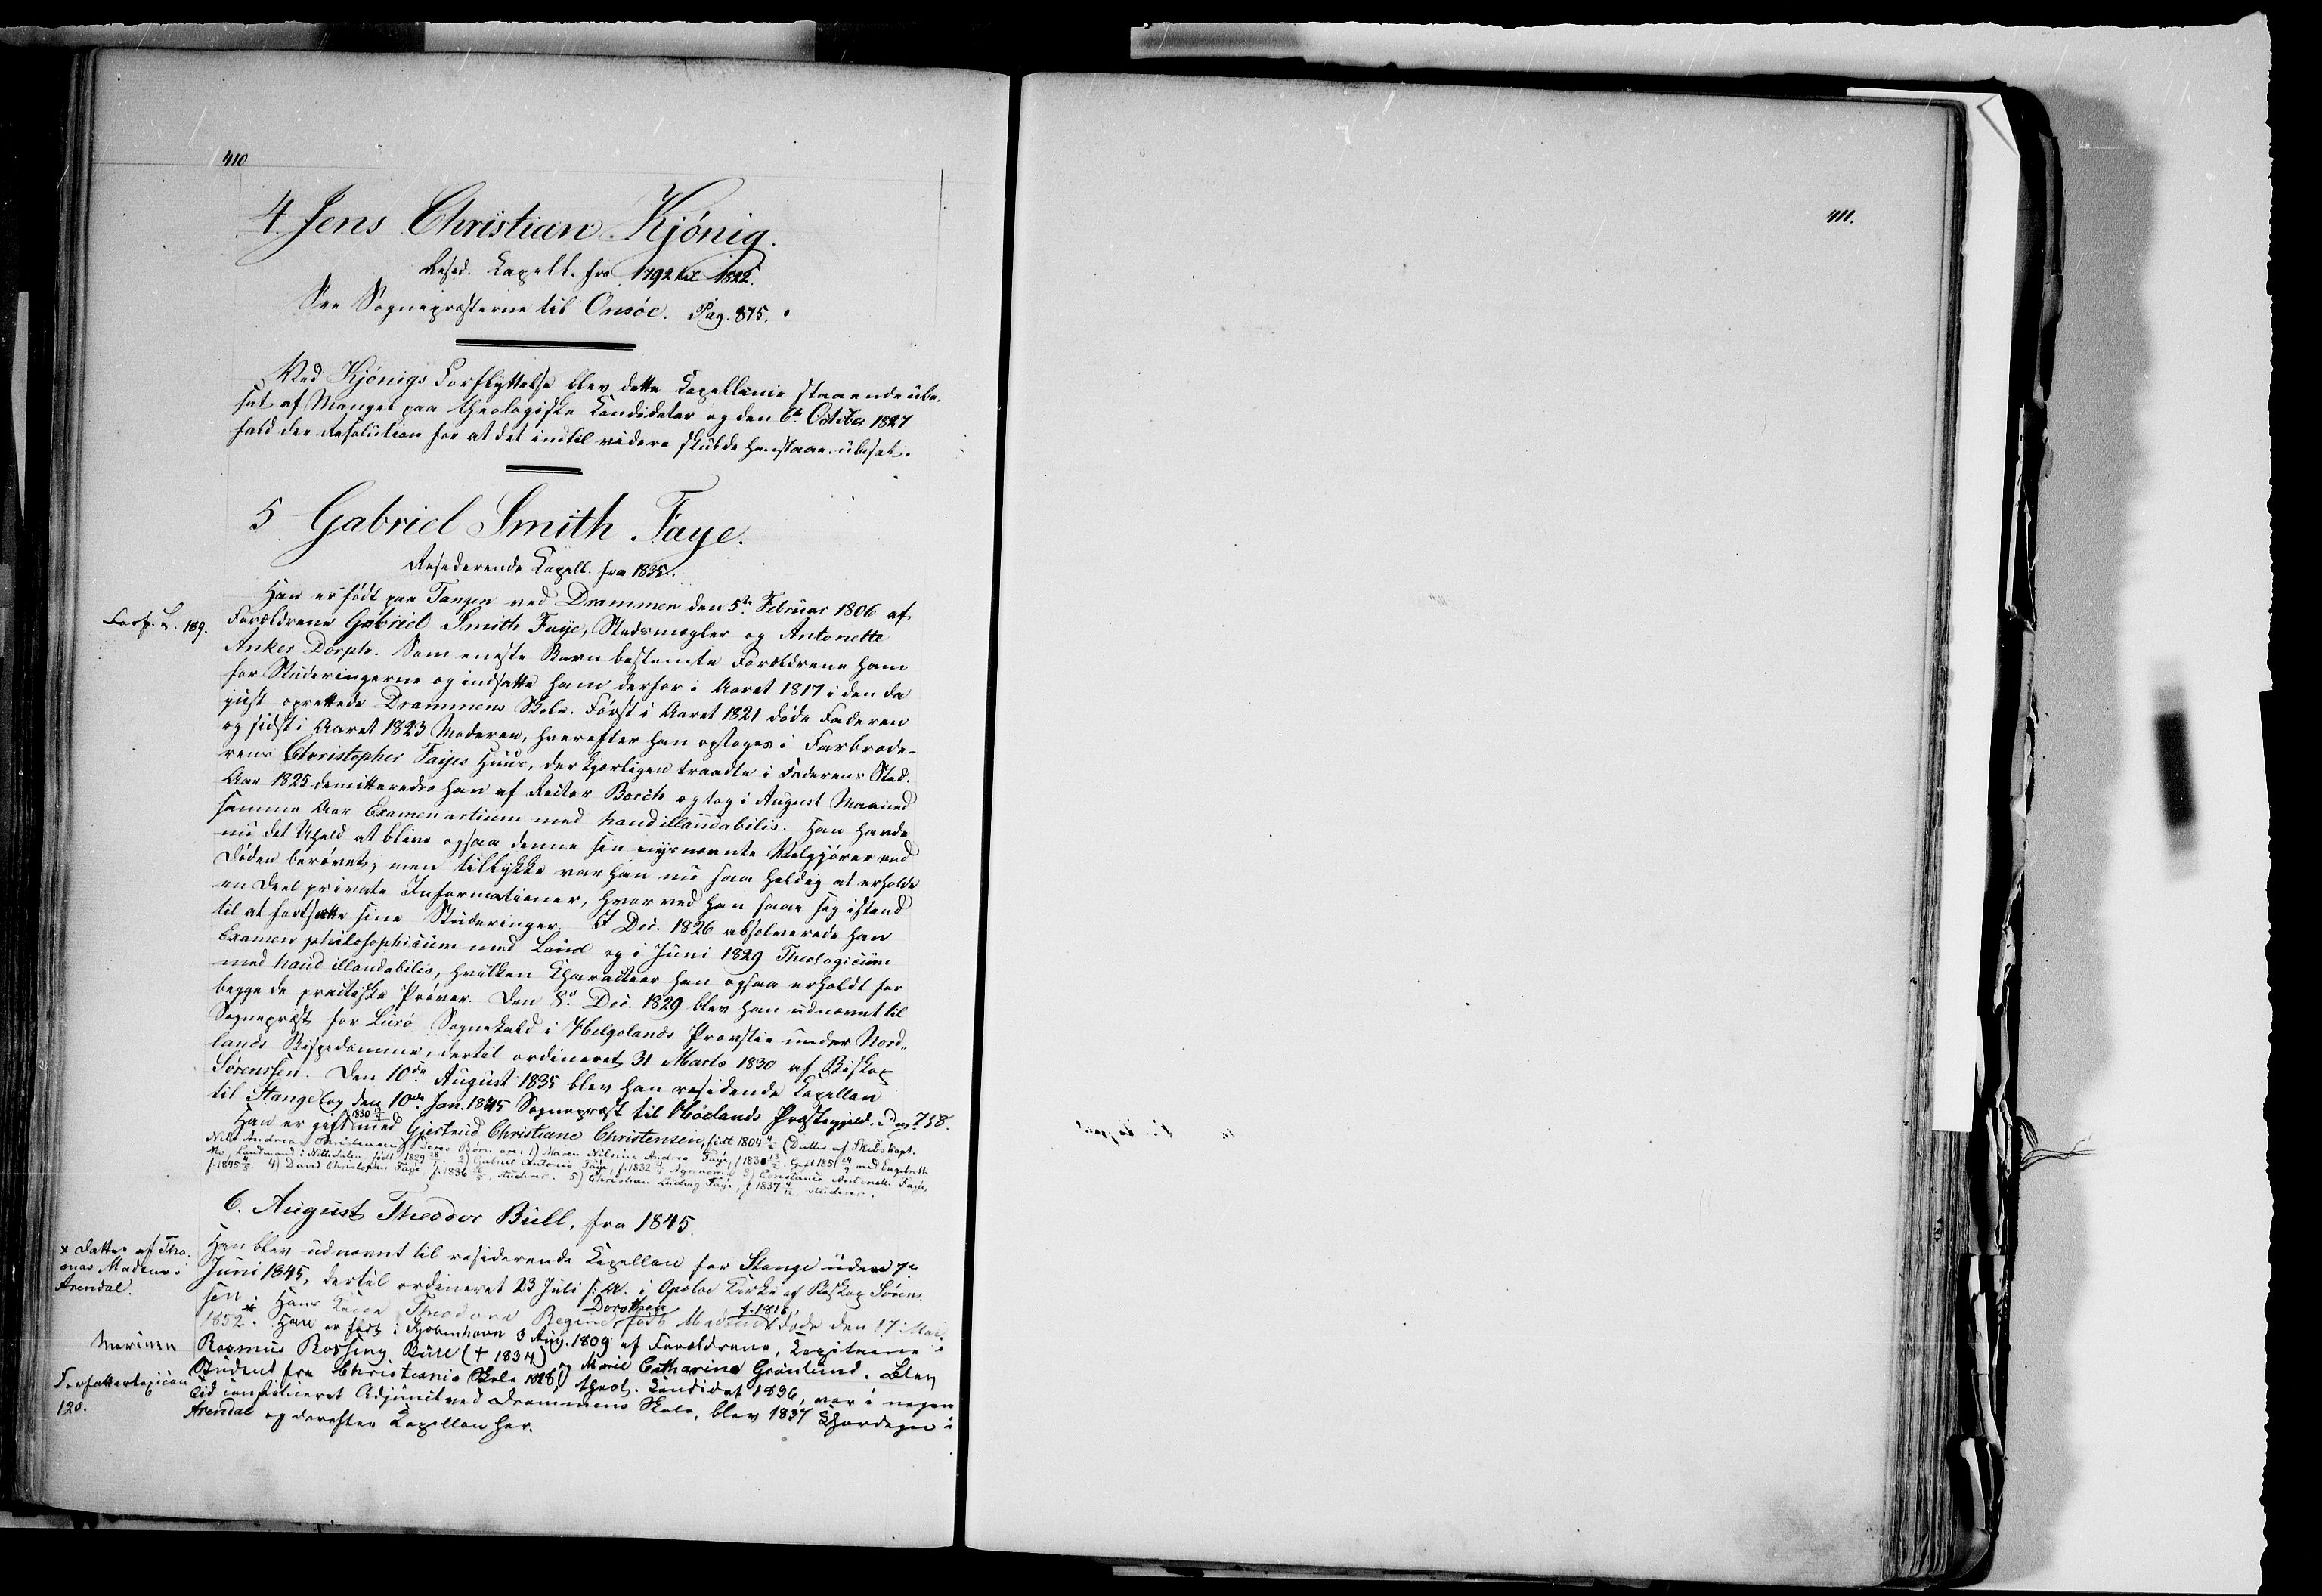 410
4. Jens Christian Kjönig.
Resid. Capell. fra 1792 til 1822.
See Sognepræsterne til Onsöe. Pag. 875.
Ved Kjönigs Forflyttelse blev dette Capellanie staaende ube-
sat af Mangel paa theologiske Candidater og den 6te October 1827
fald der Resolution for at det indtil videre skulde henstaae ubesat.
5 Gabriel Smith Faye.
Residerende Capell. fra 1835.
Han er födt paa Tangen ved Drammen den 5te Februar 1806 af
Forf. L. 189.
Forældrene Gabriel Smith Faye, Stadsmægler og Antonette
Anker Dorph. Som eneste Barn bestemte Forældrene ham
for Studeringerne og indsatte ham derfor i Aaret 1817 i den da
just oprettede Drammens Skole. Först i Aaret 1821 döde Faderen
og sidst i Aaret 1823 Moderen, hvorefter han optoges i Farbrode-
rens Christopher Fayes Huus, der kjærligen traadte i Faderens Sted.
Aar 1825 demitteredes han af Rector Borch og tog i August Maaned
samme Aar Examen artium med haud illaudabilis. Han havde
nu det Uheld at blive ogsaa denne sin nysnævnte Velgjörer ved
Döden berövet; men tillykke var han nu saa heldig at erholde
en Deel private Informationer, hvorved han saae sig istand
til at fortsætte sine Studeringer. I Dec. 1826 absolverede han
Examen philosophicum med Laud og i Juni 1829 Theologicum
med haud illaudabilis, hvilken Characteer han ogsaa erholdt for
begge de practiske Pröver. Den 8de Dec. 1829 blev han udnævnt til
Sognepræst for Lurö Sognekald i Helgelands Provstie under Nord-
lands Bispedömme, dertil ordineret 31 Marts 1830 af Biskop
Sörenssen. Den 10de August 1835 blev han residende Capellan
til Stange og den 10de Jan. 1845 Sognepræst til Höelands Præstegjeld. Pag. 758.
Han er gift med Gjertrud Christiane Christensen, födt 1804 (Datter af Skibskapt.
Nils Andreas Christensen) Deres Börn ere: 1) Maren Nilsine Andrea Faye, f. 1830 Gift 1851 med Engebreth
Mo, Landmand i Nittedalen, födt 1829 2) Gabriel Antonio Faye, f. 1832 Agronom 3) Constance Antonette Faye,
f. 1845 4) David Christopher Faye f. 1836, studerer. 5) Christian Ludvig Faye, f. 1837 studerer.
6. August Theodor Bull, fra 1845.
Han blev udnævnt til residerende Capellan for Stange under 7de
Juni 1845, dertil ordineret 23 Juli s. A. i Opsloe Kirke af Biskop Sören-
sen. Hans Kone Theodora Regine Dorothea födt Madsen f. 1815, döde den 17 Mai
1852. Han er födt i Kjöbenhavn 3 Aug. 1809 af Forældrene, Capitaine i
Marinen Rasmus Rossing Bull († 1834) og Marie Catharina Grönlund. Blev
Student fra Christiania Skole 1828, theol. Candidat 1836, var i nogen
Tid constitueret Adjunct ved Drammens Skole, blev 1837 Chordegn i
Arendal og derefter Capellan her.
* Datter af Tho-
mas Madsen i
Arendal.
Forfatterlexicon
120.
411.